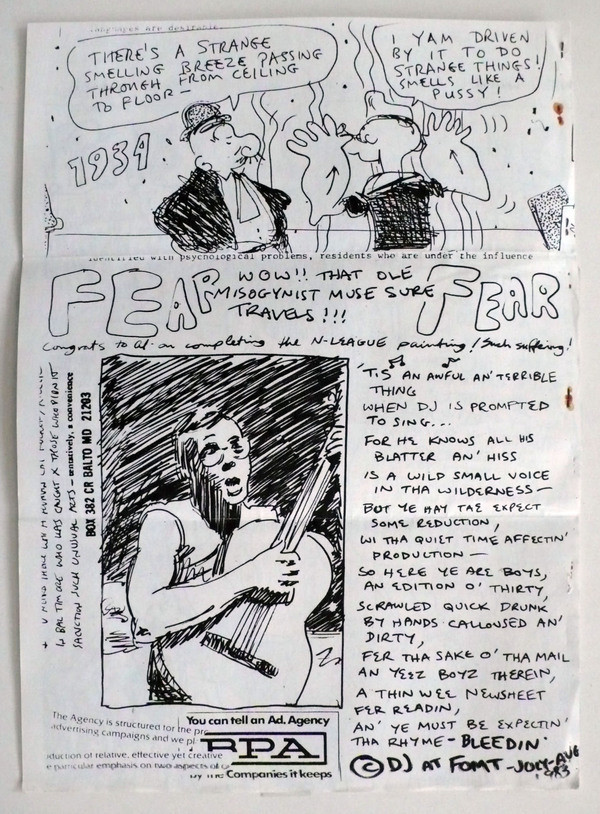 languages are desirable.
THERE'S A STRANGE
SMELLING BREEZE PASSING
THROUGH FROM CEILING
TO FLOOR —
I YAM DRIVEN
BY IT TO DO
STRANGE THINGS!
SMELLS LIKE A
PUSSY!
1934
identified with psychological problems, residents who are under the influence
FEAR
WOW!! THAT OLE
MISOGYNIST MUSE SURE
TRAVELS!!!
FEAR
Congrats to al. on completing the N-LEAGUE painting! Such suffering!
4 BALTIMORE WHO WAS CAUGHT X THOSE WHO
SANCTION SUCH UNUSUAL ACTS - tentatively, a convenience
BOX 382 CR BALTO MD 21203
'TIS AN AWFUL AN' TERRIBLE
THING
WHEN DJ IS PROMPTED
TO SING...
FOR HE KNOWS ALL HIS
BLATTER AN' HISS
IS A WILD SMALL VOICE
IN THA WILDERNESS —
BUT YE HAY TAE EXPECT
SOME REDUCTION,
WI THA QUIET TIME AFFECTIN'
PRODUCTION —
SO HERE YE ARE BOYS,
AN EDITION O' THIRTY,
SCRAWLED QUICK DRUNK
BY HANDS CALLOUSED AN'
DIRTY,
FER THA SAKE O' THA MAIL
AN YEEZ BOYZ THEREIN,
A THIN WEE NEWSHEET
FER READIN,
AN' YE MUST BE EXPECTIN'
THA RHYME - BLEEDIN'
© DJ AT FOMT - JULY-AUG
1983
The Agency is structured for the pro
advertising campaigns and we pl
You can tell an Ad. Agency
BPA
oduction of relative, effective yet creative
e particular emphasis on two aspects of
by the Companies it keeps